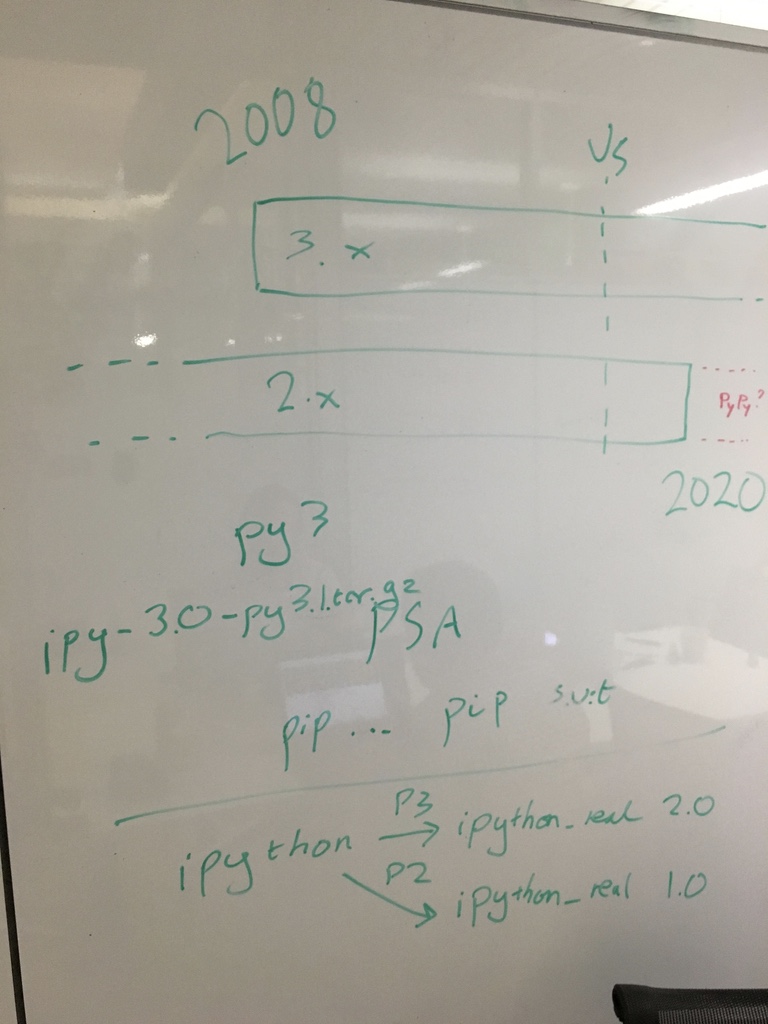 2008
US
3.x
2.x
PyPy?
2020
py3
ipy-3.0-py3.1.tar.gz
PSA
pip ... pip
ipython P3 → ipython_real 2.0
P2 → ipython_real 1.0